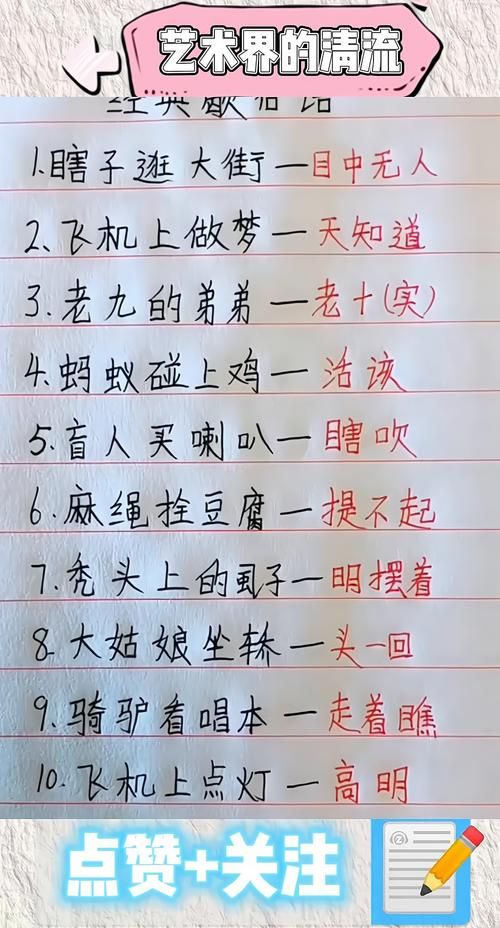 艺术界的清流
经典歇后语
1.瞎子逛大街—目中无人
2、飞机上做梦—天知道
3.老九的弟弟—老十(实)
4.蚂蚁碰上鸡—活该
5.盲人买喇叭—瞎吹
6.麻绳拴豆腐—提不起
7.秃头上的虱子—明摆着
8.大姑娘坐轿—头一回
9.骑驴看唱本—走着瞧
10.飞机上点灯—高明
点赞+关注